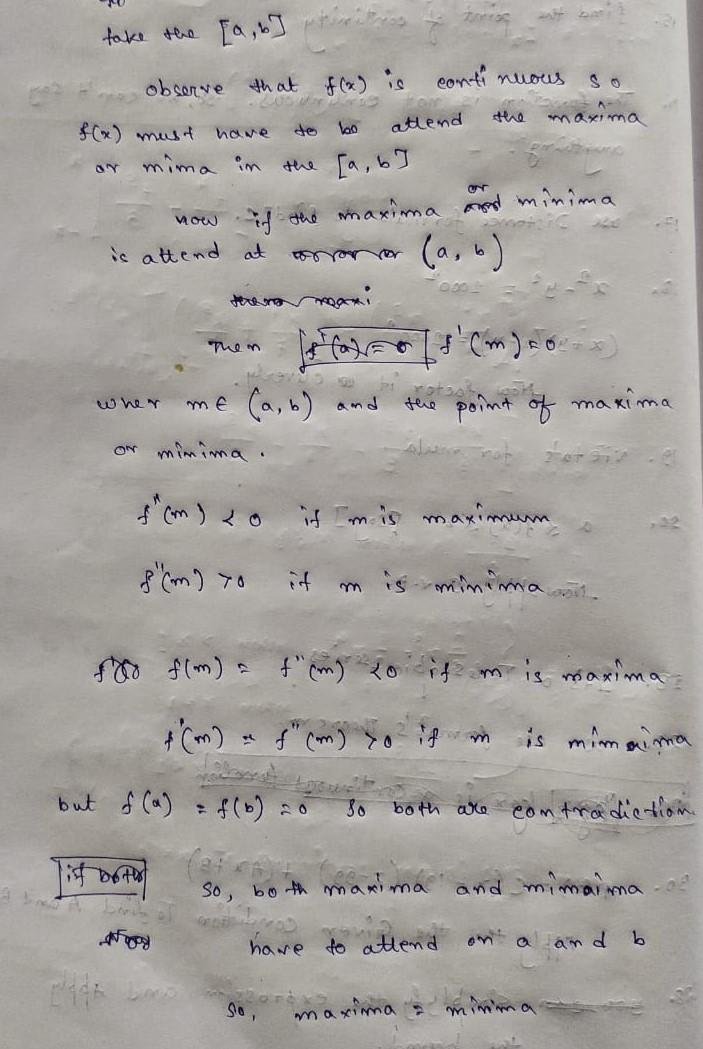 take the [a,b]
observe that f(x) is continuous so
f(x) must have to be attend the maxima
or mima in the [a,b]
now if the maxima or minima
is attend at (a,b)
Then f'(m)=0
wher m∈ (a,b) and the point of maxima
or minima.
f"(m) < 0 if m is maximum
f"(m) >0 if m is minima
f(m) = f"(m) <0 if m is maxima
f'(m) = f"(m) >0 if m is mimaima
but f(a) = f(b) =0 so both are contradiction
so, both maxima and mimaima
have to attend on a and b
so, maxima = minima